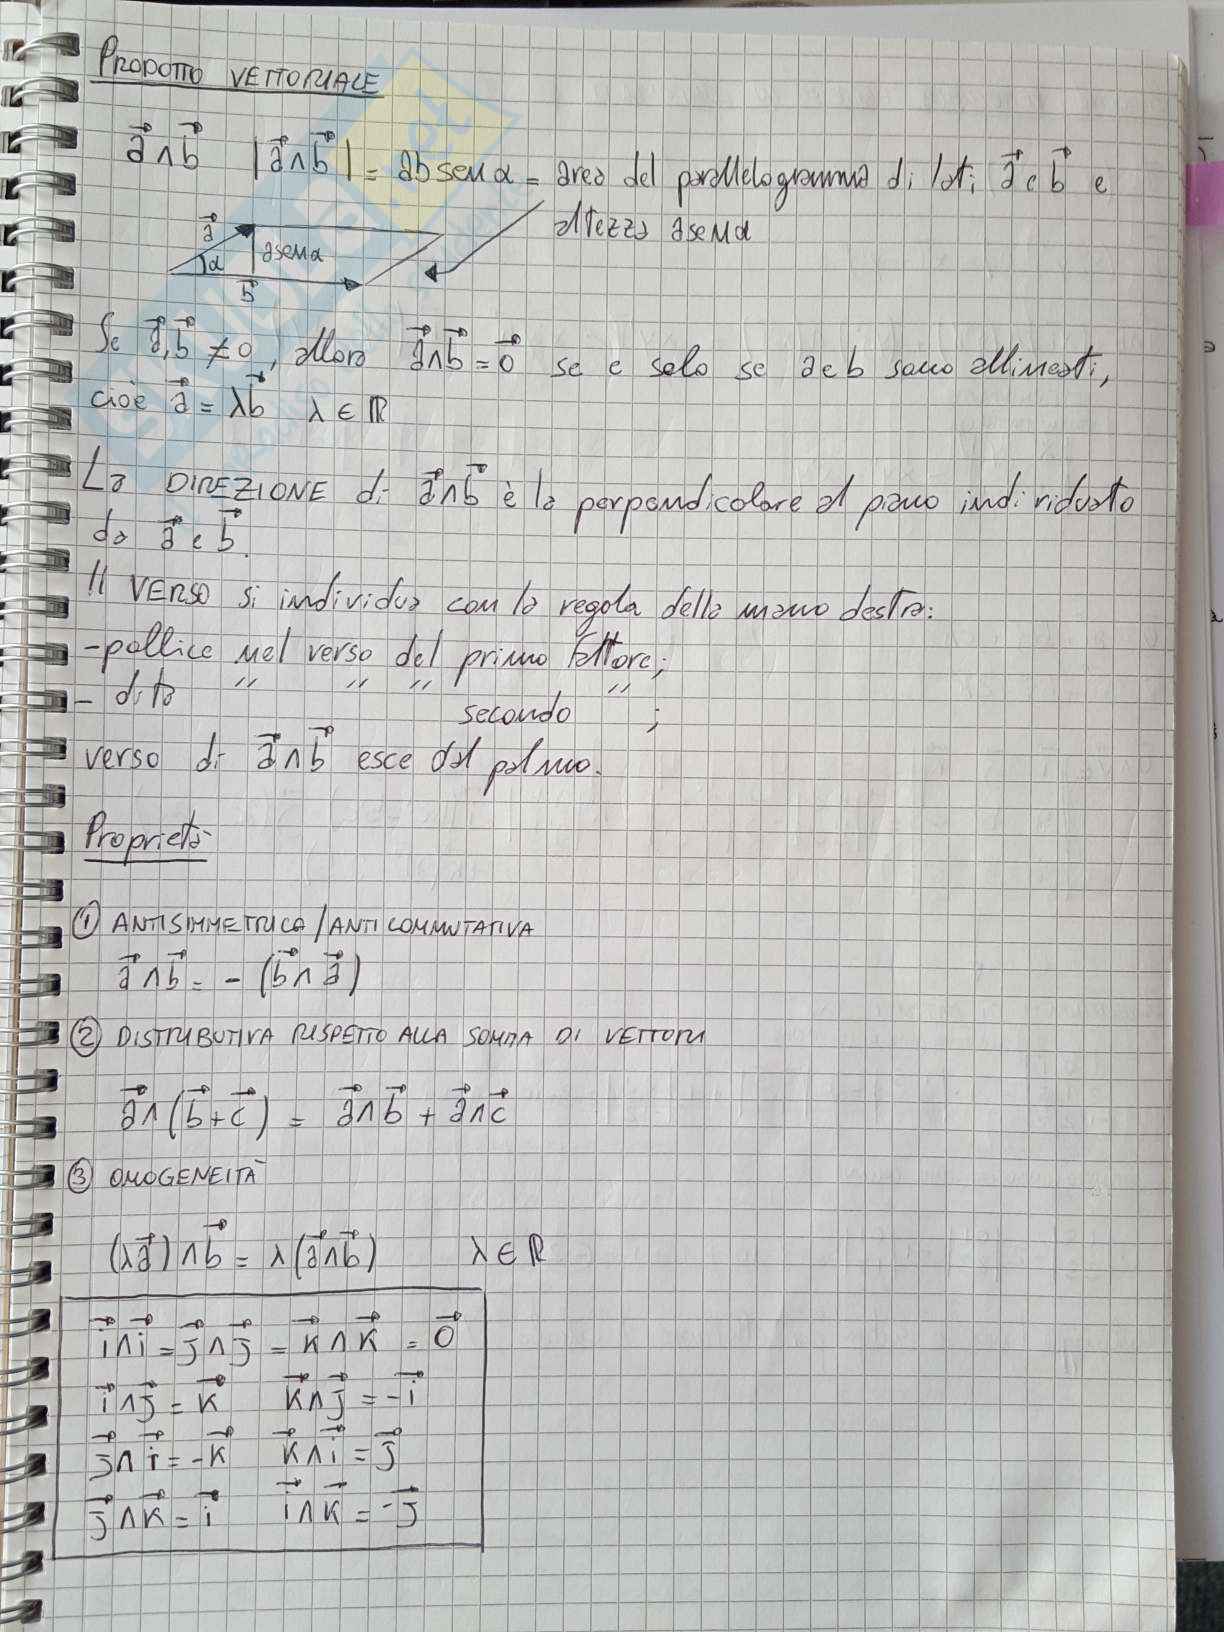 PRODOTTO VETTORIALE
a⃗∧b⃗ |a⃗∧b⃗| = ab senα = area del parallelogramma di lati a⃗ e b⃗ e
altezza a senα
a⃗
α
a senα
b⃗
Se a⃗,b⃗ ≠ 0, allora a⃗∧b⃗ = 0⃗ se e solo se a e b sono allineati,
cioè a⃗ = λb⃗ λ ∈ ℝ
La DIREZIONE di a⃗∧b⃗ è la perpendicolare al piano individuato
da a⃗ e b⃗.
Il VERSO si individua con la regola della mano destra:
- pollice nel verso del primo fattore;
- dita " " " secondo " ;
verso di a⃗∧b⃗ esce dal palmo.
Proprietà
① ANTISIMMETRICA/ANTICOMMUTATIVA
a⃗∧b⃗ = - (b⃗∧a⃗)
② DISTRIBUTIVA RISPETTO ALLA SOMMA DI VETTORI
a⃗∧(b⃗+c⃗) = a⃗∧b⃗ + a⃗∧c⃗
③ OMOGENEITÀ
(λa⃗)∧b⃗ = λ(a⃗∧b⃗) λ ∈ ℝ
i⃗∧i⃗ = j⃗∧j⃗ = k⃗∧k⃗ = 0⃗
i⃗∧j⃗ = k⃗ k⃗∧j⃗ = -i⃗
j⃗∧i⃗ = -k⃗ k⃗∧i⃗ = j⃗
j⃗∧k⃗ = i⃗ i⃗∧k⃗ = -j⃗